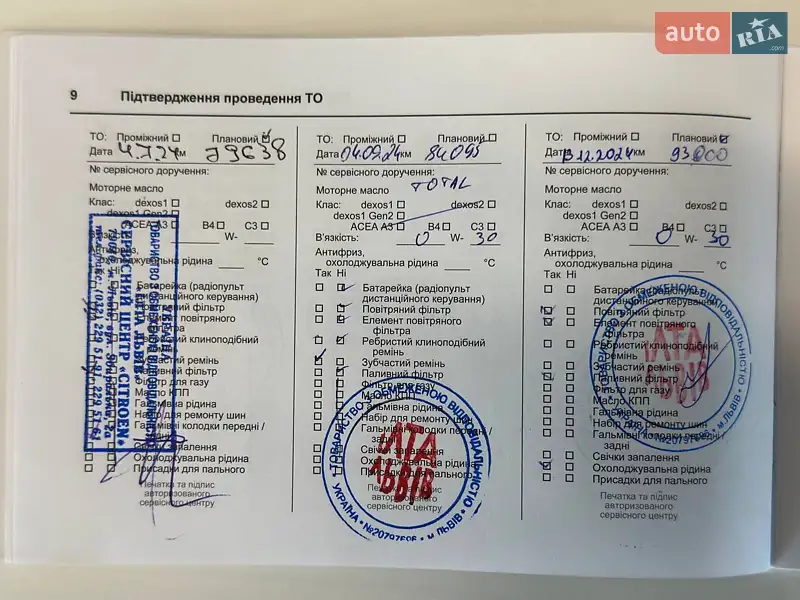 auto RIA.com
9 Підтвердження проведення ТО
ТО: Проміжний Плановий
Дата 4.7.24 км 79638
№ сервісного доручення:
Моторне масло
Клас: dexos1 dexos2
dexos1 Gen2
ACEA A3 B4 C3
В'язкість: W-
Антифриз,
охолоджувальна рідина °C
Так Ні
Батарейка (радіопульт
дистанційного керування)
Повітряний фільтр
Елемент повітряного
фільтра
Ребристий клиноподібний
ремінь
Зубчастий ремінь
Паливний фільтр
Фільтр для газу
Масло КПП
Гальмівна рідина
Набір для ремонту шин
Гальмівні колодки передні /
задні
запалення
Охолоджувальна рідина
Присадки для пального
Печатка та підпис
авторизованого
сервісного центру
СЕРВІСНИЙ ЦЕНТР «CITROEN»
ТО: Проміжний Плановий
Дата 04.09.24 км 84095
№ сервісного доручення:
Моторне масло TOTAL
Клас: dexos1 dexos2
dexos1 Gen2
ACEA A3 B4 C3
В'язкість: 0 W- 30
Антифриз,
охолоджувальна рідина °C
Так Ні
Батарейка (радіопульт
дистанційного керування)
Повітряний фільтр
Елемент повітряного
фільтра
Ребристий клиноподібний
ремінь
Зубчастий ремінь
Паливний фільтр
Фільтр для газу
Масло КПП
Гальмівна рідина
Набір для ремонту шин
Гальмівні колодки передні /
задні
Свічки запалення
Охолоджувальна рідина
Присадки для пального
ТОВАРИСТВО З ОБМЕЖЕНОЮ ВІДПОВІДАЛЬНІСТЮ
АТА
ЛЬВІВ
УКРАЇНА • №20797696 • м ЛЬВІВ
ТО: Проміжний Плановий
Дата 12.2024 км 93000
№ сервісного доручення:
Моторне масло
Клас: dexos1 dexos2
dexos1 Gen2
ACEA A3 B4 C3
В'язкість: 0 W- 30
Антифриз,
охолоджувальна рідина °C
Так Ні
Батарейка (радіопульт
дистанційного керування)
Повітряний фільтр
Елемент повітряного
фільтра
Ребристий клиноподібний
ремінь
Зубчастий ремінь
Паливний фільтр
Фільтр для газу
Масло КПП
Гальмівна рідина
Набір для ремонту шин
Гальмівні колодки передні /
задні
Свічки запалення
Охолоджувальна рідина
Присадки для пального
Печатка та підпис
авторизованого
сервісного центру
АТА
ЛЬВІВ